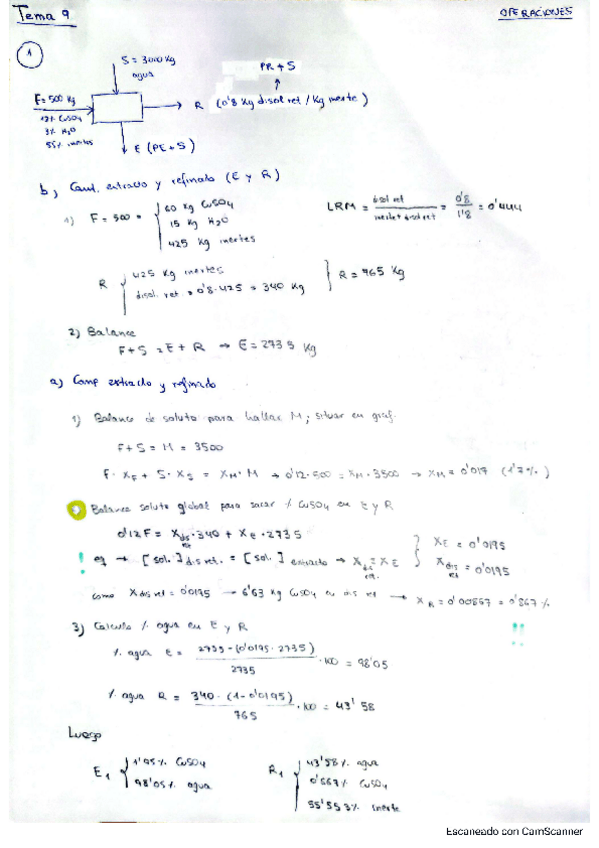 Tema 9
OPERACIONES
1
S = 3000 Kg
agua
F = 500 Kg
12% CuSO4
3% H2O
55% inertes
PR + S
↑
R (0'8 Kg disol ret / Kg inerte)
E (PE + S)
b) Cant. extracto y refinado (E y R)
1) F = 500 =
60 Kg CuSO4
15 Kg H2O
425 Kg inertes
LRM = disol ret / inerte + disol ret = 0'8 / 1'8 = 0'444
R
425 Kg inertes
disol. ret = 0'8·425 = 340 Kg
R = 765 Kg
2) Balance
F + S = E + R → E = 2735 Kg
a) Comp extracto y refinado
1) Balance de soluto para hallar M; situar en graf.
F + S = M = 3500
F · XF + S · XS = XM · M → 0'12·500 = XM·3500 → XM = 0'017 (1'7%)
Balance soluto global para sacar % CuSO4 en E y R
0'12F = Xdis ret · 340 + XE · 2735
! eq → [sol.] dis ret. = [sol.] extracto → Xdis ret. = XE
XE = 0'0195
Xdis ret = 0'0195
como Xdis ret = 0'0195 → 6'63 Kg CuSO4 en dis ret → XR = 0'00867 = 0'867%
!!
3) Calculo % agua en E y R
% agua E = 2735 - (0'0195 · 2735) / 2735 · 100 = 98'05
% agua R = 340 · (1 - 0'0195) / 765 · 100 = 43'58
Luego
E1
1'95% CuSO4
98'05% agua
R1
43'58% agua
0'867% CuSO4
55'553% inerte
Escaneado con CamScanner